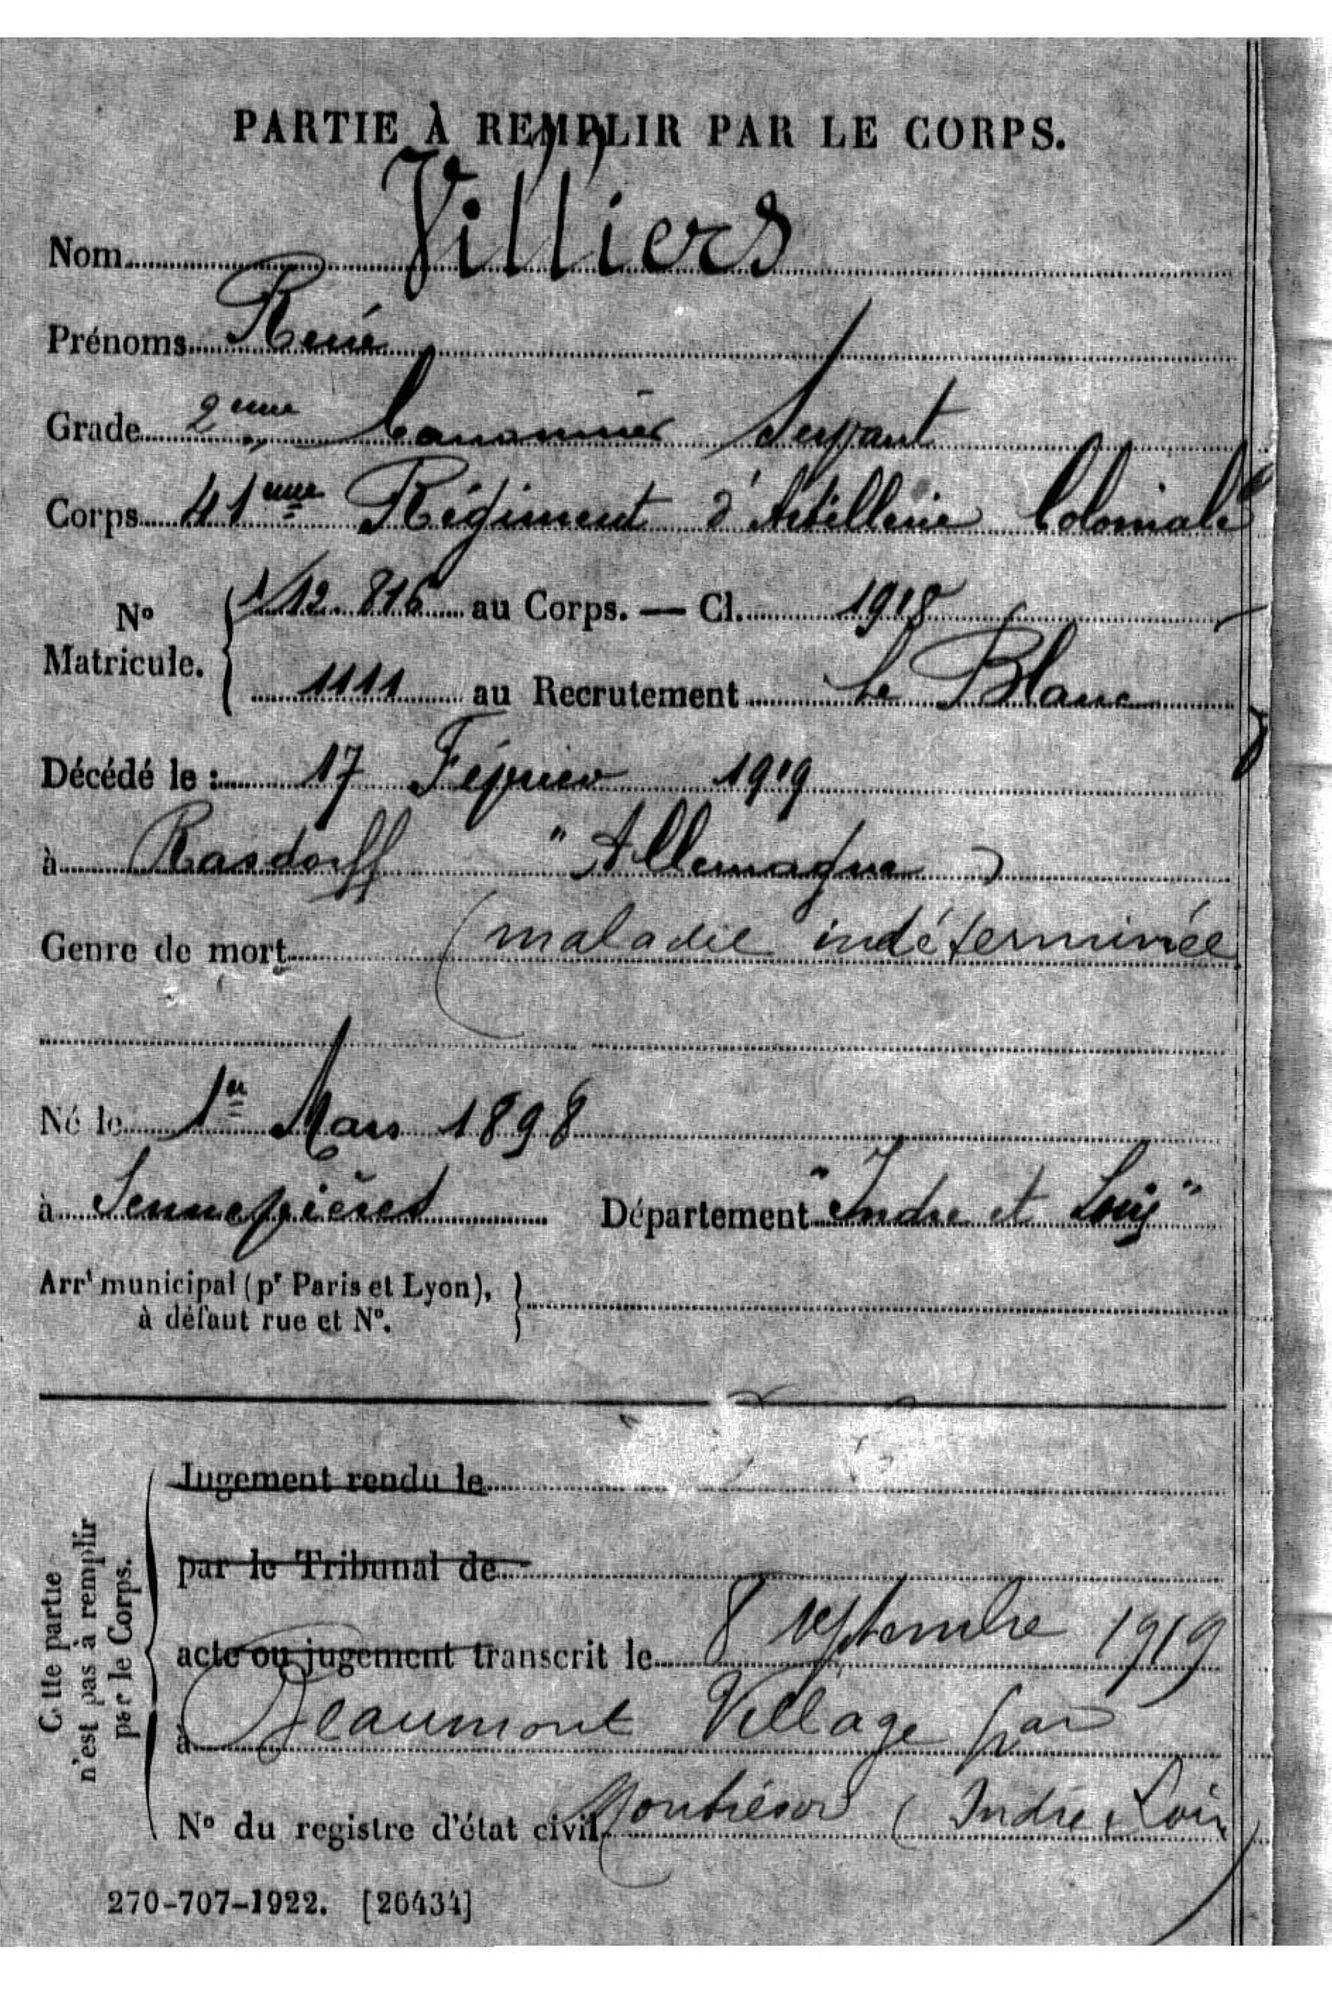 PARTIE À REMPLIR PAR LE CORPS.
Nom Villiers
Prénoms René
Grade 2eme Canonnier Servant
Corps 41eme Régiment d'Artillerie Coloniale
No Matricule. 12.816 au Corps. — Cl. 1918
1111 au Recrutement Le Blanc
Décédé le : 17 Février 1919
à Rasdorff "Allemagne"
Genre de mort (maladie indéterminée
Né le 1er Mars 1898
à Sennevières Département "Indre et Loire"
Arrt municipal (pr Paris et Lyon),
à défaut rue et No.
Cette partie
n'est pas à remplir
par le Corps.
Jugement rendu le
par le Tribunal de
acte ou jugement transcrit le 8 septembre 1919
à Beaumont Village par
No du registre d'état civil Montrésor (Indre & Loire)
270-707-1922. [26434]